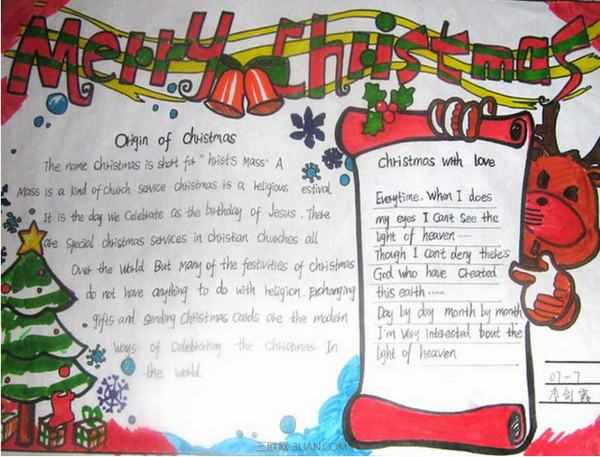 Merry Christmas
Origin of Christmas
The name Christmas is short for "hrist's Mass". A
Mass is a kind of church service christmas is a religious estival
It is the day we celebrate as the birthday of Jesus. There
are special christmas services in christian churches all
Over the world But many of the festivities of christmas
do not have anything to do with religion. Exchanging
gifts and sending Christmas cards are the modern
ways of celebrating the christmas In
the world
Christmas with love
Everytime. When I does
my eyes I can't see the
light of heaven
Though I can't deny there's
God who have created
this earth
Day by day month by month
I'm very interested 'bout the
light of heaven
07-7
三联网 3LIAN.COM